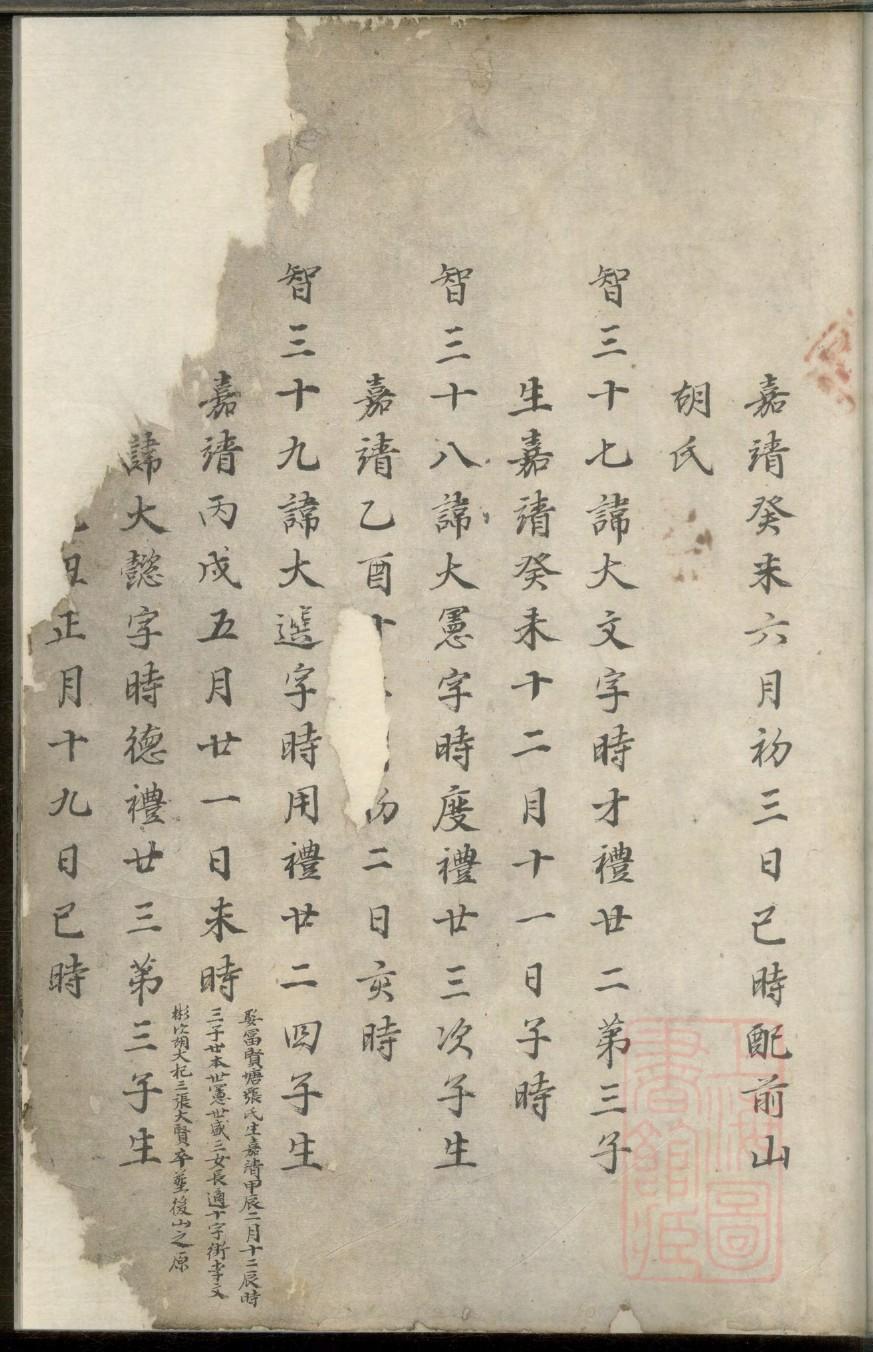 嘉靖癸未六月初三日巳時配前山
胡氏
智三十七諱大文字時才禮廿二第三子
生嘉靖癸未十二月十一日子時
智三十八諱大憲字時度禮廿三次子生
嘉靖乙酉十初二日亥時
智三十九諱大選字時用禮廿二四子生
嘉靖丙戌五月廿一日未時
娶富賢塘張氏生嘉靖甲辰二月十二辰時
三子世本世憲世盛三女長適十字街李文
彬次胡大杞三張大賢卒塟後山之原
諱大懿字時德禮廿三第三子生
丑正月十九日巳時
上海圖書館藏